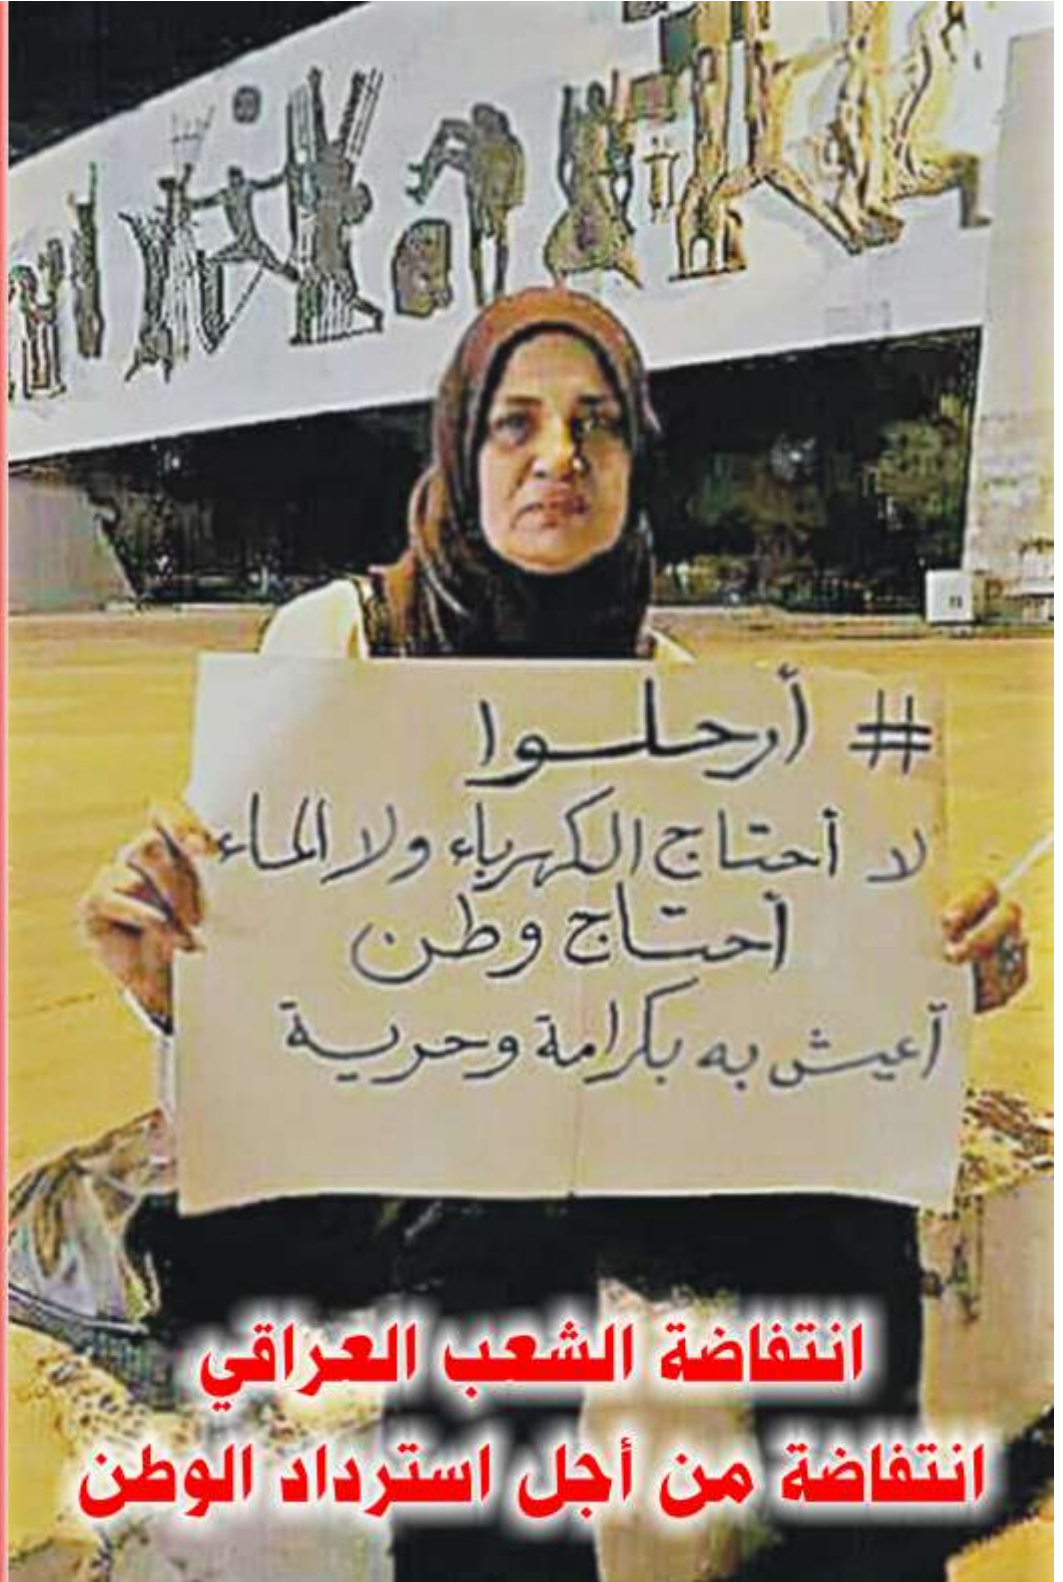 # أرحلوا
لا أحتاج الكهرباء ولا الماء
أحتاج وطن
أعيش به بكرامة وحرية
انتفاضة الشعب العراقي
انتفاضة من أجل استرداد الوطن